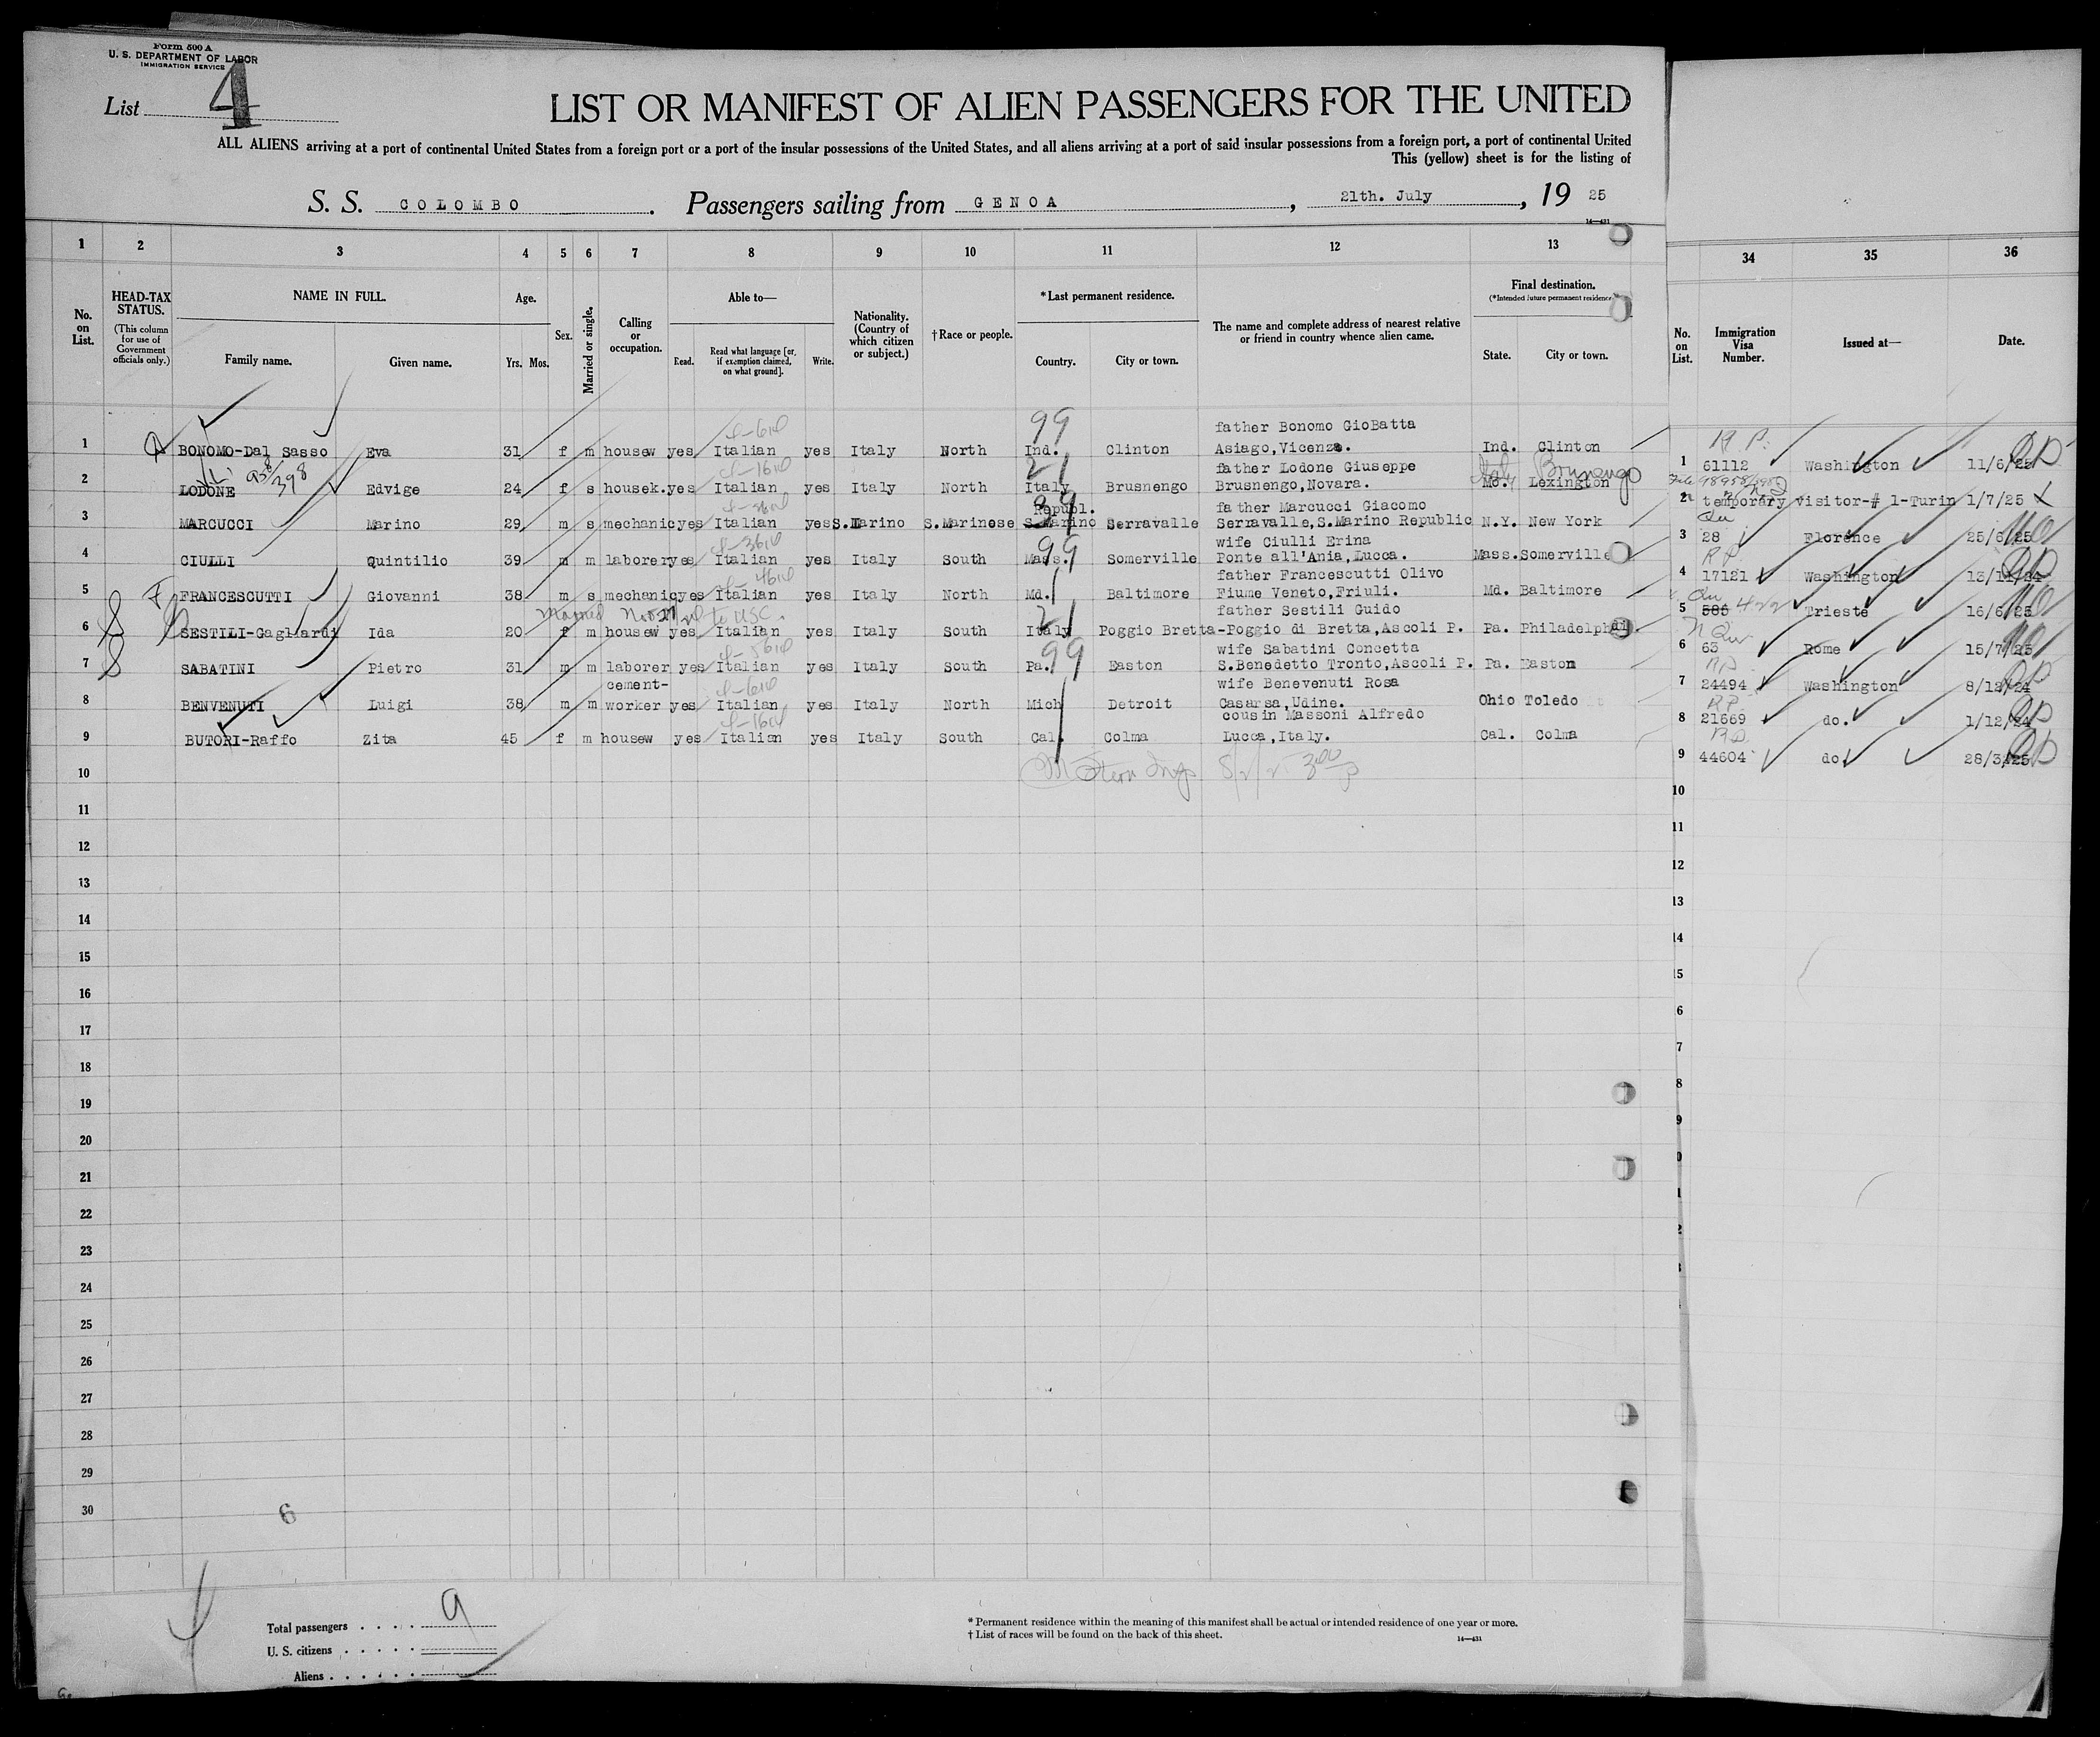 Form 500 A
U. S. DEPARTMENT OF LABOR
IMMIGRATION SERVICE
List 4
LIST OR MANIFEST OF ALIEN PASSENGERS FOR THE UNITED
ALL ALIENS arriving at a port of continental United States from a foreign port or a port of the insular possessions of the United States, and all aliens arriving at a port of said insular possessions from a foreign port, a port of continental United
This (yellow) sheet is for the listing of
S. S. COLOMBO. Passengers sailing from GENOA, 21th. July, 19 25
14—431
1 2 3 4 5 6 7 8 9 10 11 12 13 34 35 36
No. on List.
HEAD-TAX STATUS.
(This column for use of Government officials only.)
NAME IN FULL.
Family name. Given name.
Age.
Yrs. Mos.
Sex.
Married or single.
Calling or occupation.
Able to—
Read. Read what language [or, if exemption claimed, on what ground]. Write.
Nationality. (Country of which citizen or subject.)
†Race or people.
*Last permanent residence.
Country. City or town.
The name and complete address of nearest relative or friend in country whence alien came.
Final destination.
(*Intended future permanent residence)
State. City or town.
No. on List.
Immigration Visa Number.
Issued at—
Date.
99 father Bonomo GioBatta R P.
1 BONOMO-Dal Sasso Eva 31 f m housew yes Italian yes Italy North Ind. Clinton Asiago,Vicenza. Ind. Clinton 1 61112 Washington 11/6/25
21 father Lodone Giuseppe Italy Brusnengo
2 LODONE Edvige 24 f s housek. yes Italian yes Italy North Italy Brusnengo Brusnengo,Novara. Mo. Lexington 2 temporary visitor-# 1-Turin 1/7/25
Republ. father Marcucci Giacomo Qu
3 MARCUCCI Marino 29 m s mechanic yes Italian yes S.Marino S.Marinese S.Marino Serravalle Serravalle,S.Marino Republic N.Y. New York 3 28 Florence 25/6/25
99 wife Ciulli Erina R P.
4 CIULLI Quintilio 39 m m laborer yes Italian yes Italy South Mass. Somerville Ponte all'Ania,Lucca. Mass. Somerville 4 17121 Washington 13/11/24
father Francescutti Olivo Qu
5 F FRANCESCUTTI Giovanni 38 m s mechanic yes Italian yes Italy North Md. Baltimore Fiume Veneto,Friuli. Md. Baltimore 5 586 422 Trieste 16/6/25
Married to USC. 21 father Sestili Guido
6 SESTILI-Gagliardi Ida 20 f m housew yes Italian yes Italy South Italy Poggio Bretta-Poggio di Bretta,Ascoli P. Pa. Philadelphai. 6 63 Rome 15/7/25
99 wife Sabatini Concetta
7 SABATINI Pietro 31 m m laborer yes Italian yes Italy South Pa. Easton S.Benedetto Tronto,Ascoli P. Pa. Easton 7 24494 Washington 8/12/24
cement- wife Benevenuti Rosa R P.
8 BENVENUTI Luigi 38 m m worker yes Italian yes Italy North Mich Detroit Casarsa,Udine. Ohio Toledo 8 21669 do. 1/12/24
cousin Massoni Alfredo
9 BUTORI-Raffo Zita 45 f m housew yes Italian yes Italy South Cal. Colma Lucca,Italy. Cal. Colma 9 44604 do. 28/3/25
10 10
11 11
12 12
13 13
14 14
15 15
16 6
17 7
18 8
19 9
20 0
21 1
22 2
23 2
24 3
25
26
27
28
29
30
6
Total passengers . . . . 9
U. S. citizens . . . . .
Aliens . . . . . .
* Permanent residence within the meaning of this manifest shall be actual or intended residence of one year or more.
† List of races will be found on the back of this sheet.
14—431